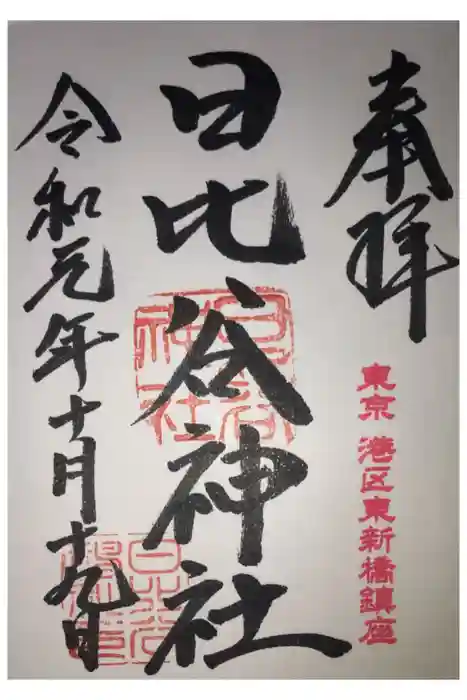 奉拝
東京 港区東新橋鎮座
日比谷神社
日比谷神社
令和元年十月十九日